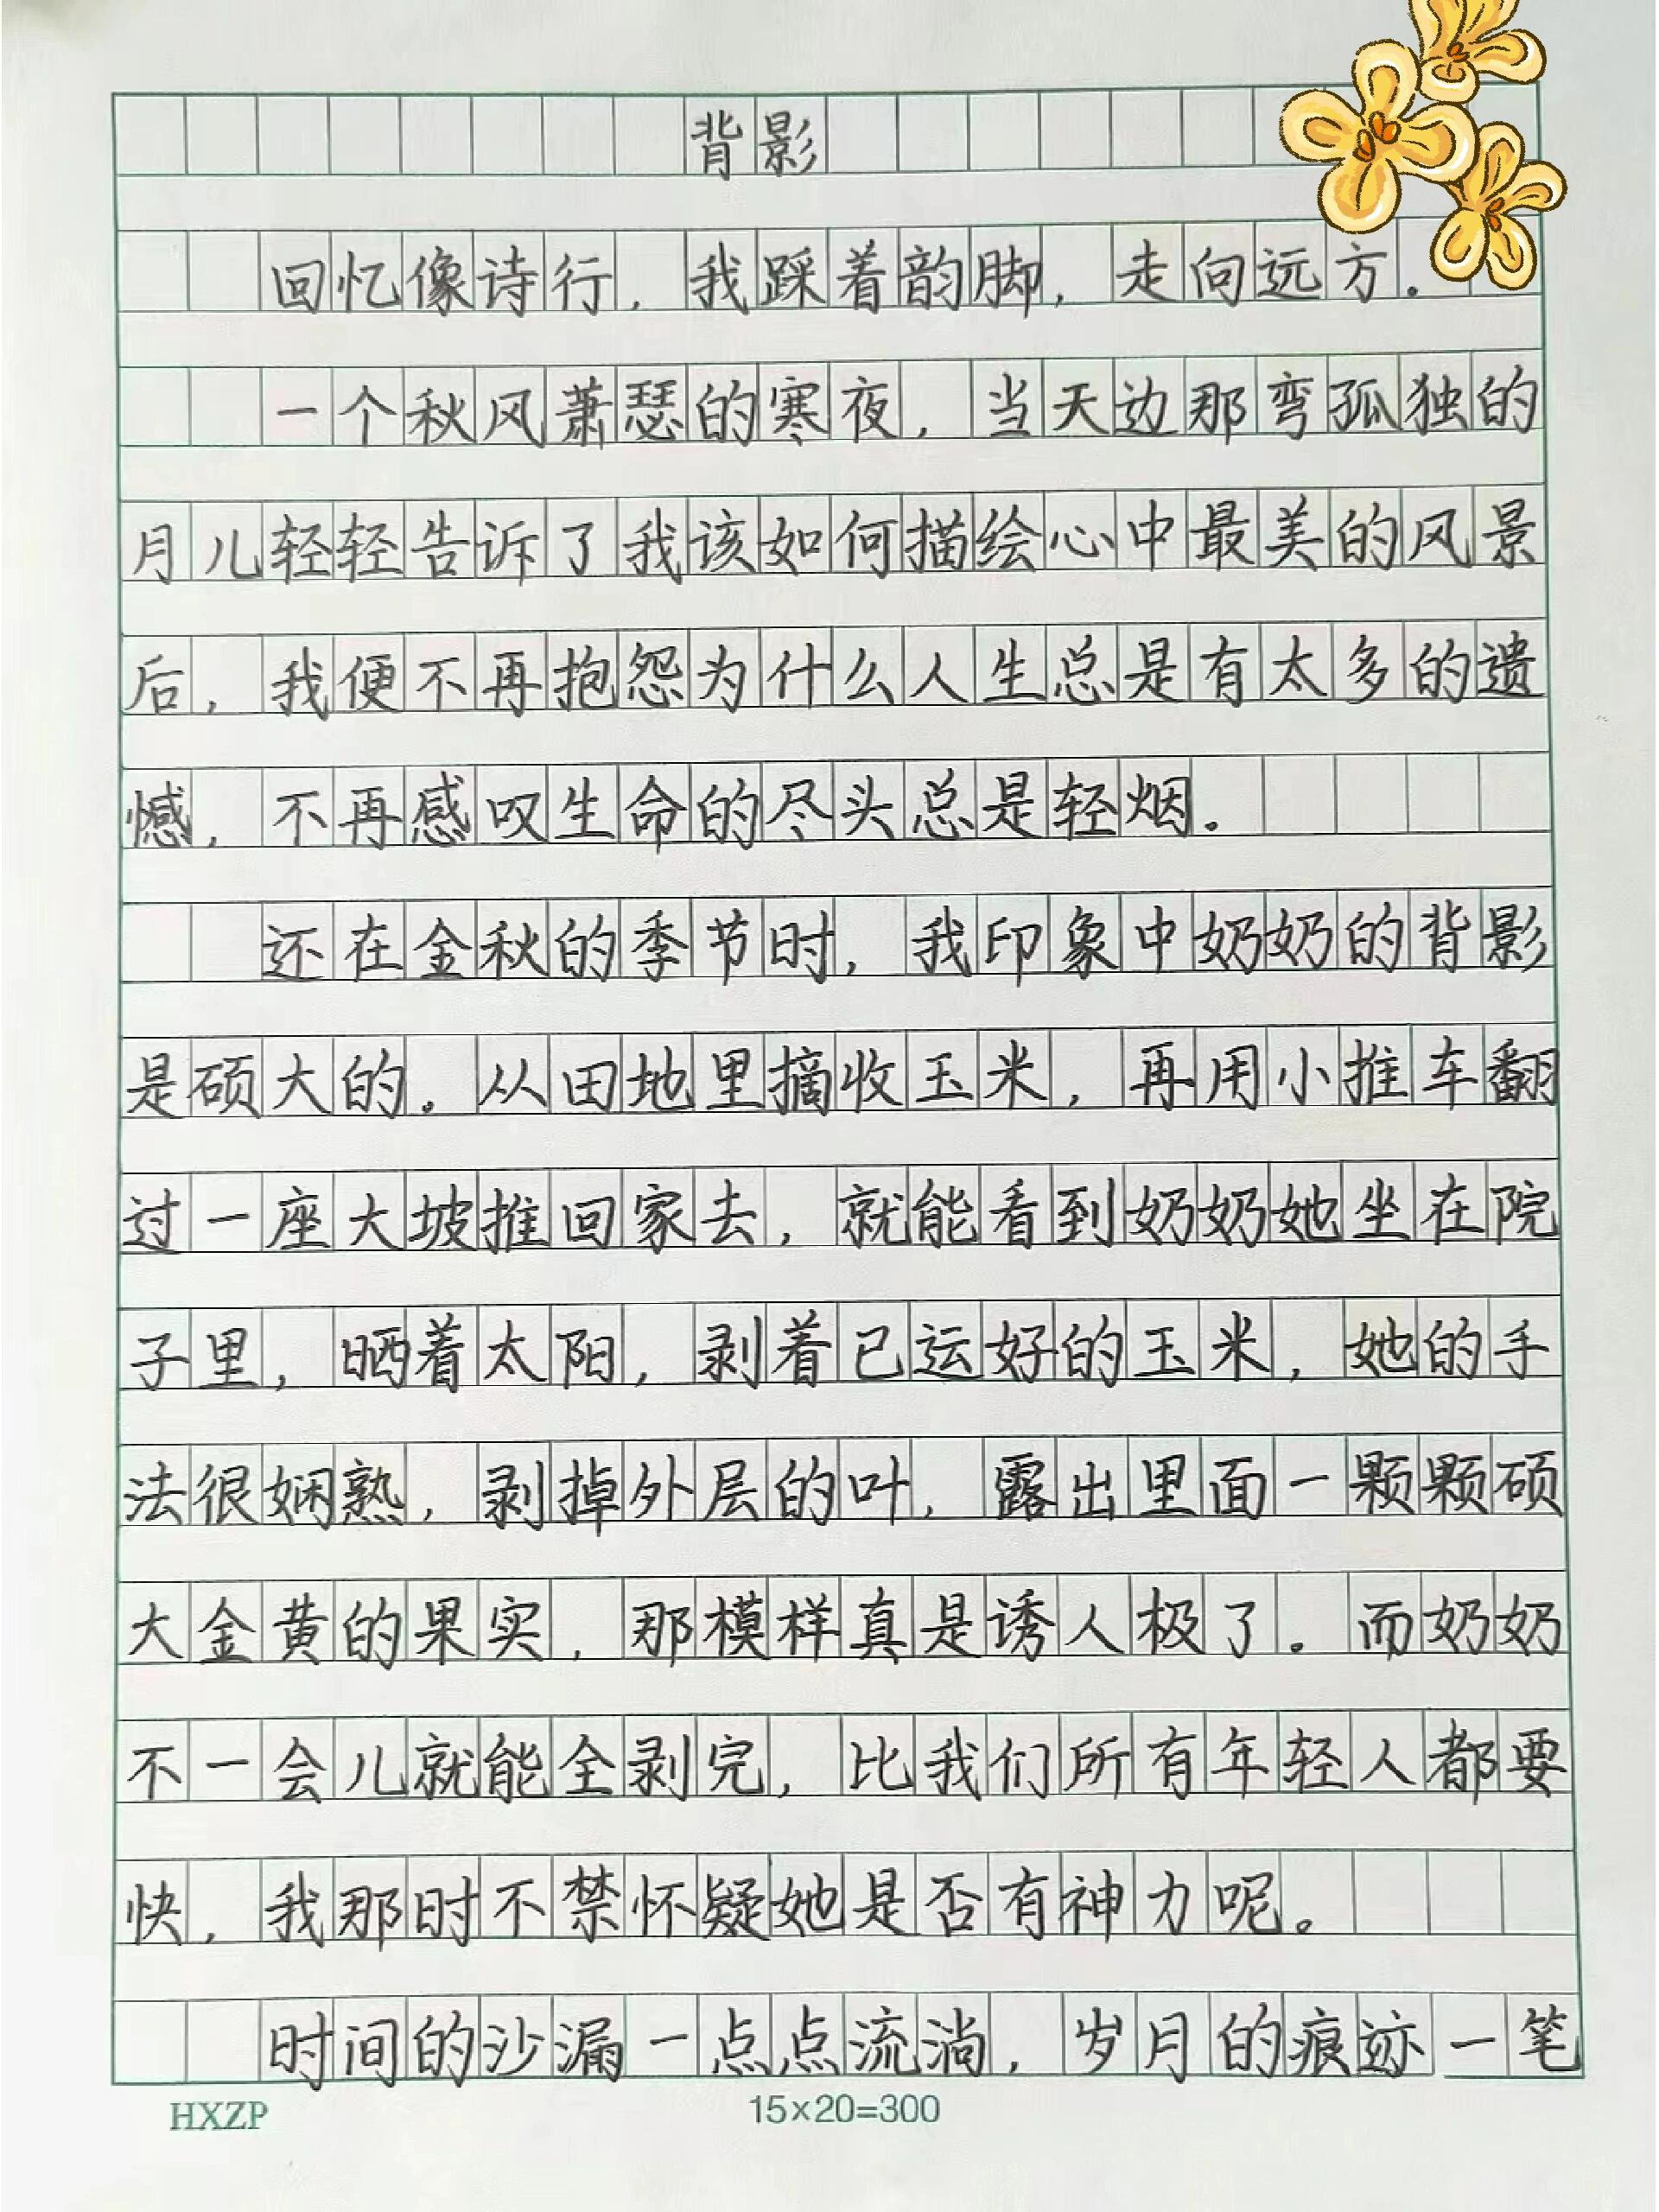 背影
回忆像诗行，我踩着韵脚，走向远方。
一个秋风萧瑟的寒夜，当天边那弯孤独的
月儿轻轻告诉了我该如何描绘心中最美的风景
后，我便不再抱怨为什么人生总是有太多的遗
憾，不再感叹生命的尽头总是轻烟。
还在金秋的季节时，我印象中奶奶的背影
是硕大的。从田地里摘收玉米，再用小推车翻
过一座大坡推回家去，就能看到奶奶她坐在院
子里，晒着太阳，剥着已运好的玉米，她的手
法很娴熟，剥掉外层的叶，露出里面一颗颗硕
大金黄的果实，那模样真是诱人极了。而奶奶
不一会儿就能全剥完，比我们所有年轻人都要
快，我那时不禁怀疑她是否有神力呢。
时间的沙漏一点点流淌，岁月的痕迹一笔
HXZP 15×20=300